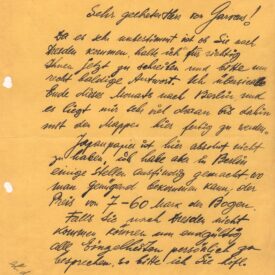 Sehr geehrter Herr von Garvens!
Da es sehr unbestimmt ist ob Sie nach
Dresden kommen, halte ich für richtig
Ihnen jetzt zu schreiben und bitte um
recht baldige Antwort. Ich übersiedle
Ende dieses Monats nach Berlin und
es liegt mir sehr viel daran bis dahin
mit den Mappen hier fertig zu werden.
Japanpapier ist hier absolut nicht
zu haben, ich habe aber in Berlin
einige Stellen ausfindig gemacht wo
man genügend bekommen kann, der
Preis von 7-60 Mark der Bogen.
Falls Sie nach Dresden nicht
kommen können um endgültig
alle Einzelheiten persönlich zu
besprechen, so bitte ich Sie höfl.